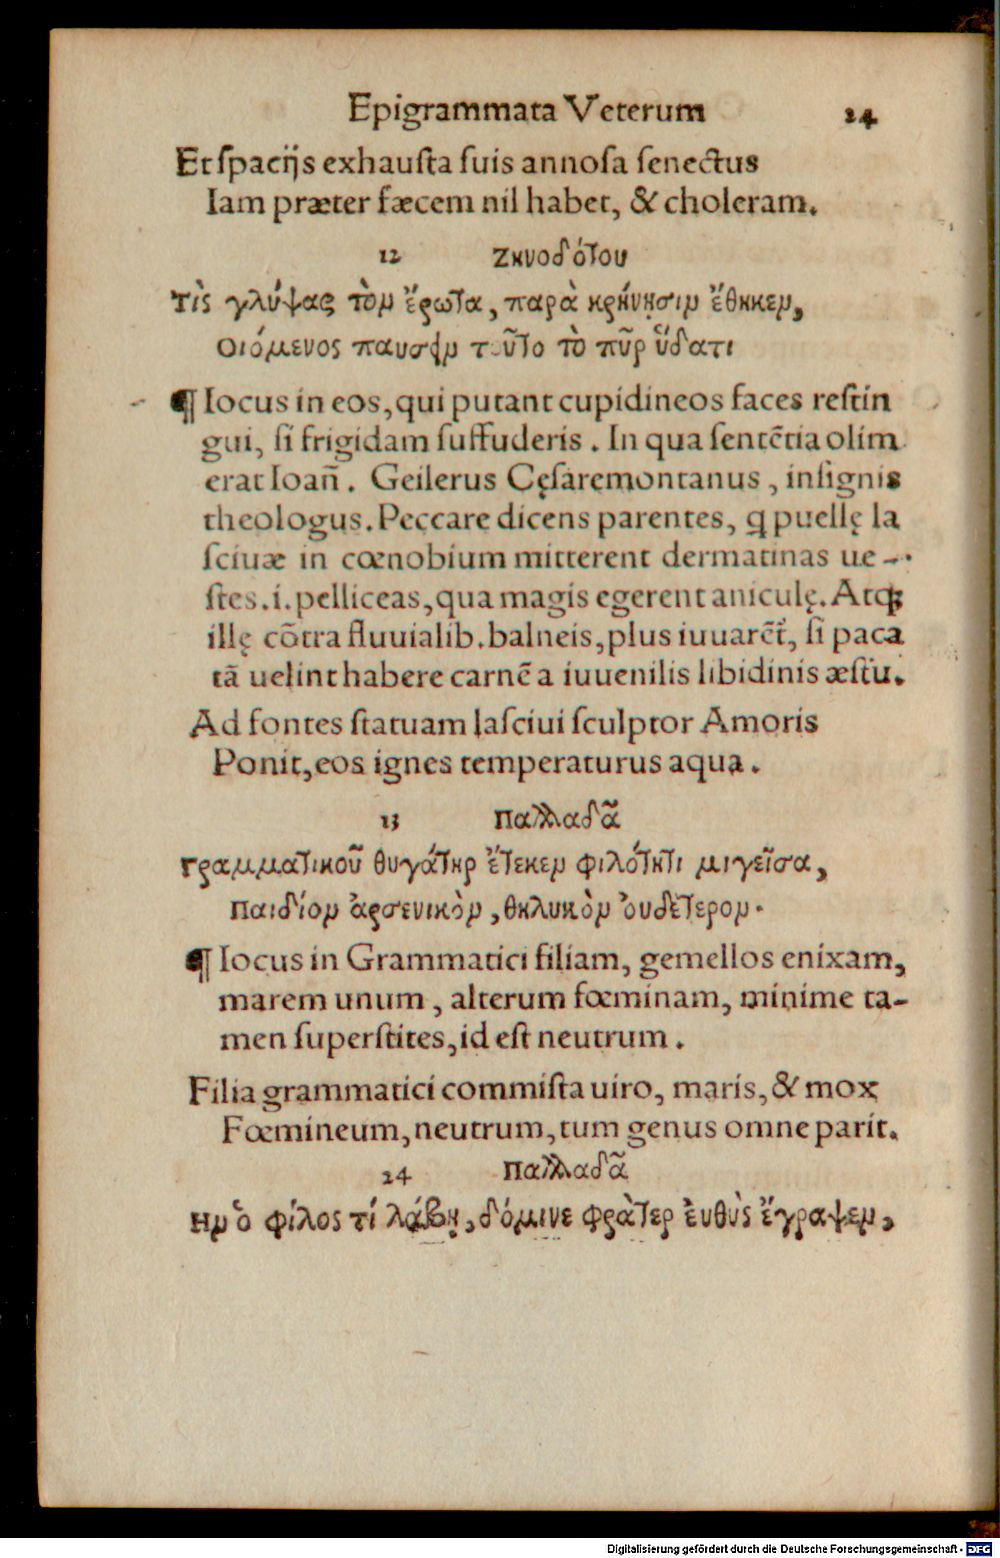 Epigrammata Veterum 24
Et ſpacijs exhauſta ſuis annoſa ſenectus
Iam præter fæcem nil habet, & choleram.
12 Ζηνοδότου
Τὶς γλύψας τὸν ἔρωτα, παρὰ κρήνῃσιν ἔθηκεν,
Οιόμενος παυσῂν τοῦτο τὸ πῦρ ὕδατι
¶ Iocus in eos, qui putant cupidineos faces reſtin
gui, ſi frigidam ſuffuderis. In qua ſentētia olim
erat Ioañ. Geilerus Cęſaremontanus, inſignis
theologus. Peccare dicens parentes, ꝙ puellę la
ſciuæ in cœnobium mitterent dermatinas ue-
ſtes .i. pelliceas, qua magis egerent aniculę. Atqꝫ
illę cōtra fluuialib. balneis, plus iuuarēt, ſi paca
tā uelint habere carnē a iuuenilis libidinis æſtu.
Ad fontes ſtatuam laſciui ſculptor Amoris
Ponit, eos ignes temperaturus aqua.
13 Παλλαδᾶ
Γραμματικοῦ θυγάτηρ ἔτεκεν φιλότητι μιγεῖσα,
Παιδίον ἀρσενικὸν, θηλυκὸν ὀυδέτερον.
¶ Iocus in Grammatici filiam, gemellos enixam,
marem unum, alterum fœminam, minime ta-
men ſuperſtites, id eſt neutrum.
Filia grammatici commiſta uiro, maris, & mox
Fœmineum, neutrum, tum genus omne parit.
24 Παλλαδᾶ
Ην ὁ φίλος τί λάβῃ, δόμινε φρὰτερ ἐυθὺς ἔγραψεν,
Digitalisierung gefördert durch die Deutsche Forschungsgemeinschaft - DFG